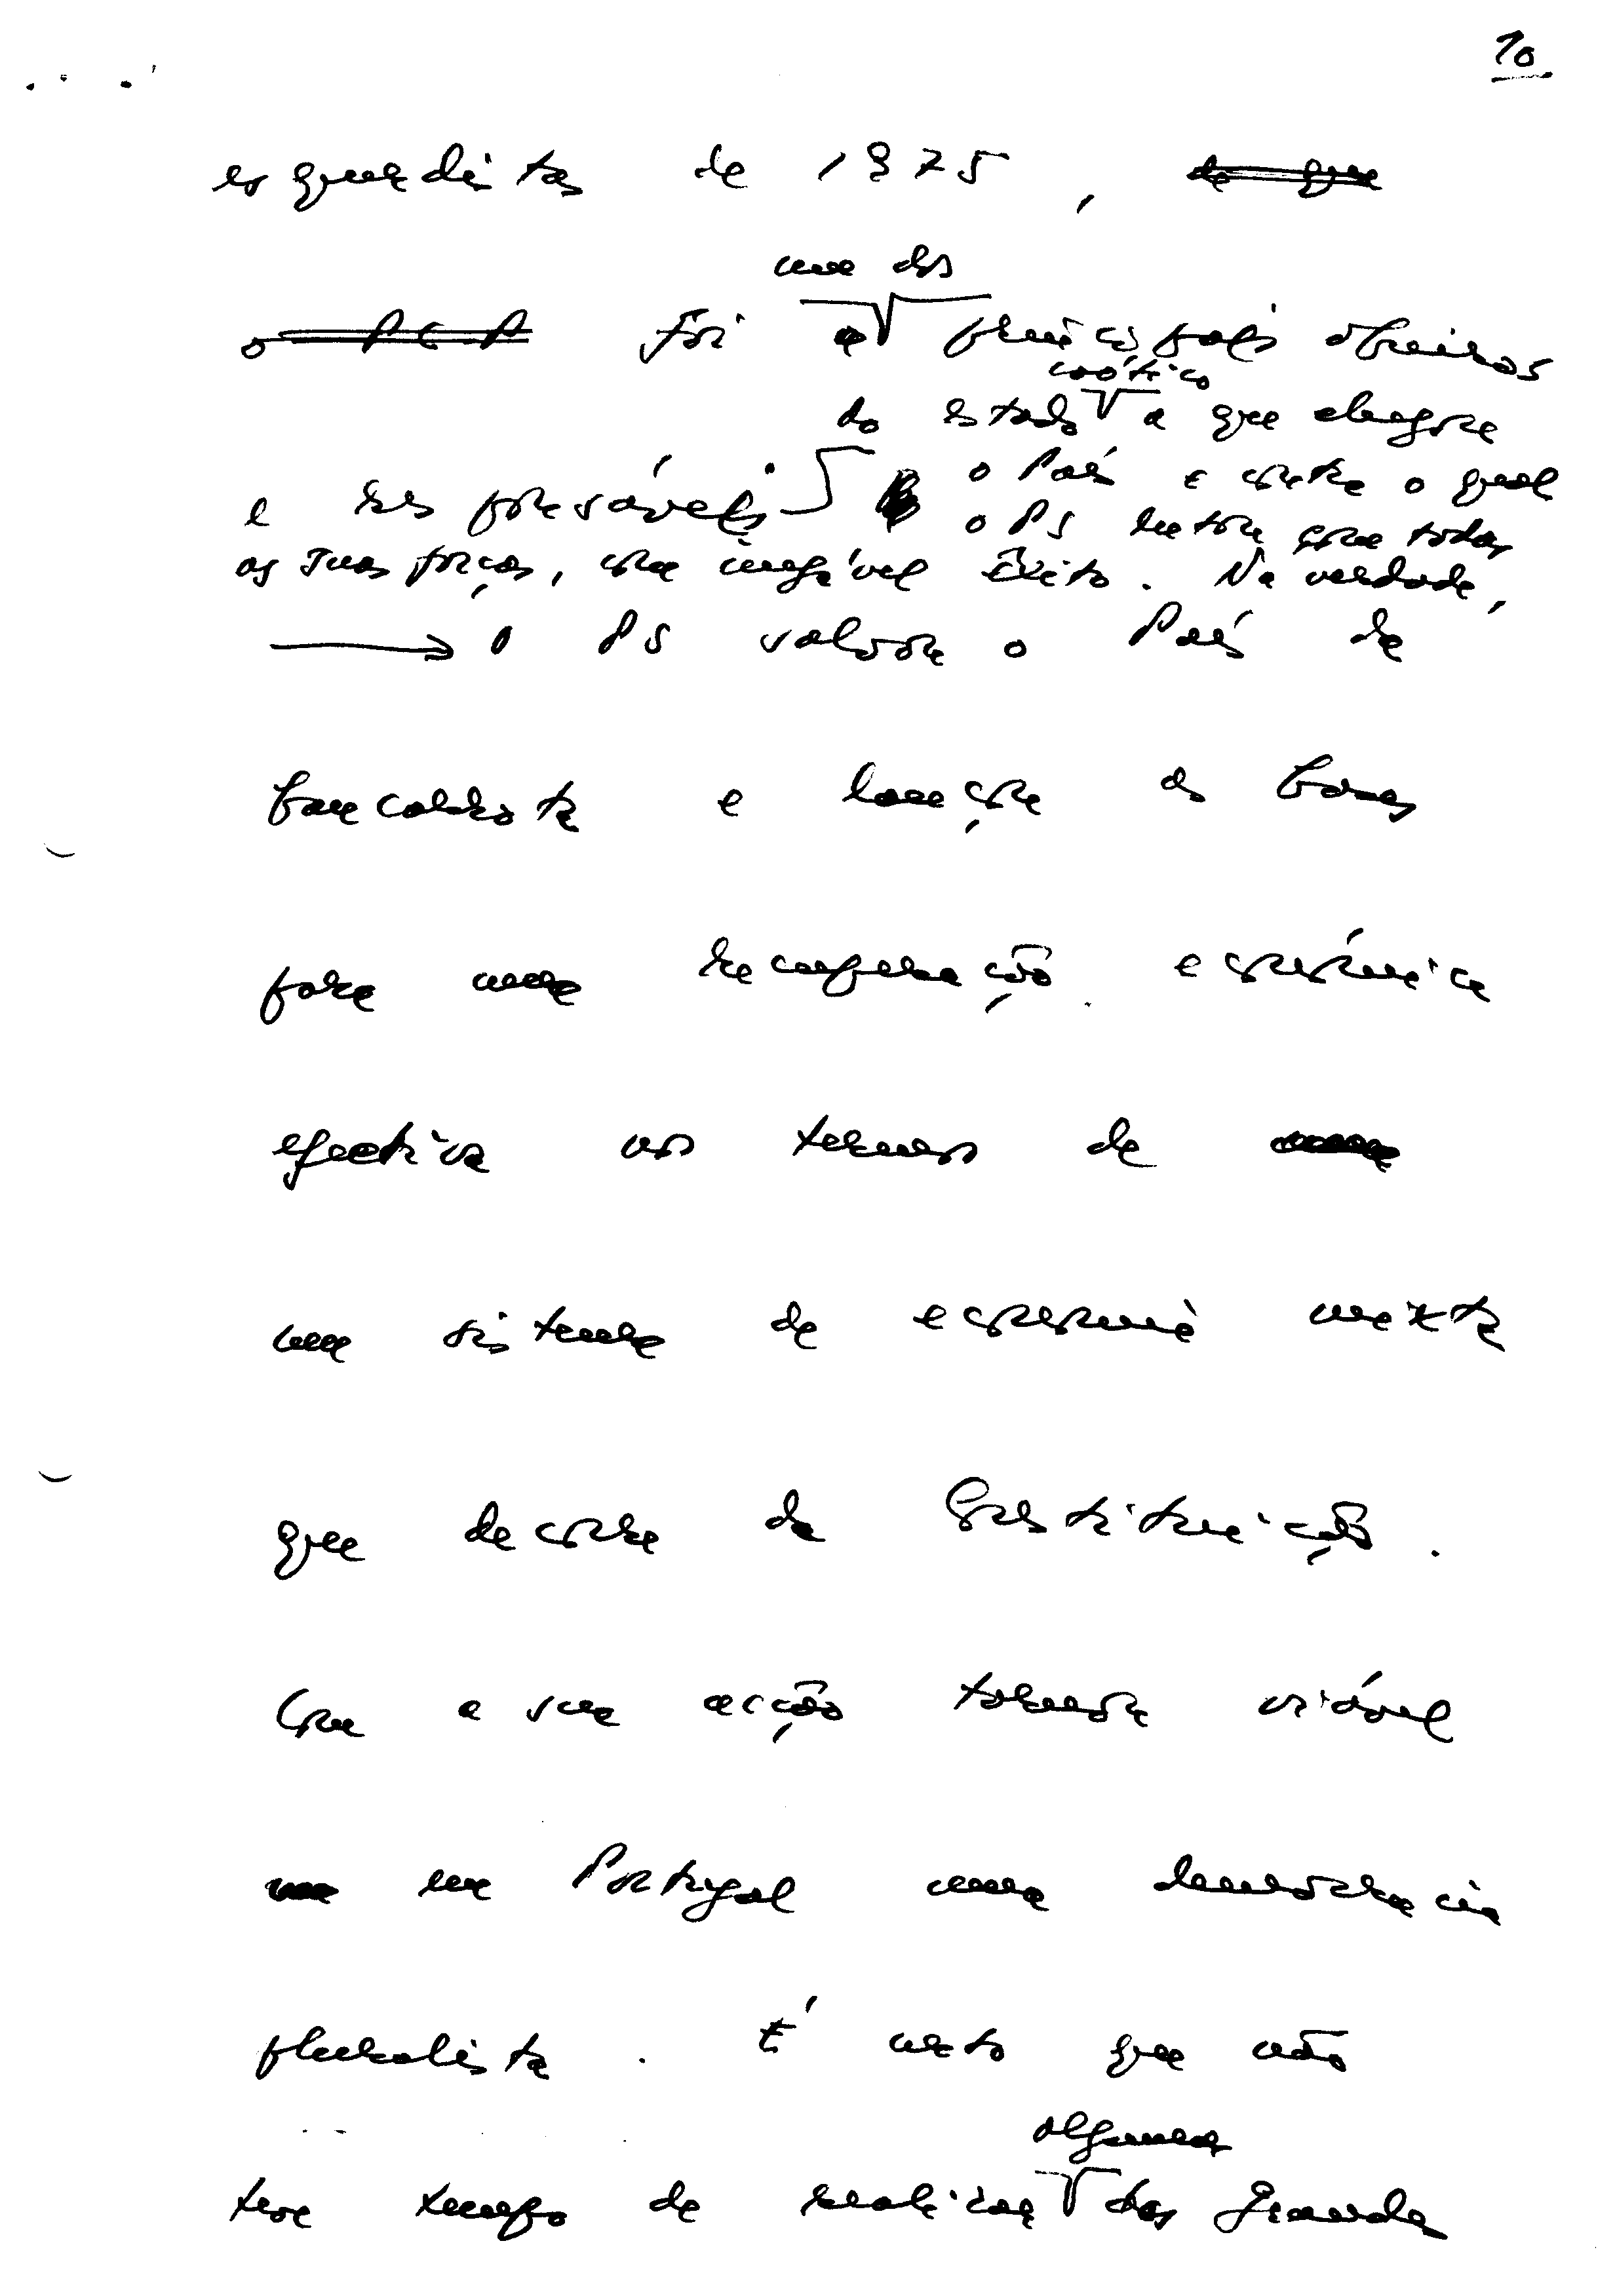 10
esquerdistas de 1975, do que
um dos
o PCP foi a principais obreiros
caótico
do estado a que chegou
e responsáveis o País e contra o qual
o PS lutou com todas
as suas forças, com inegável êxito. Na verdade,
→ O PS salvou o País da
bancarrota e lançou as bases
para uma recuperação económica
efectiva nos termos de
um sistema de economia mixta
que decorre da Constituição.
Com a sua acção tornou viável
em Portugal uma democracia
pluralista. É certo que não
algumas
teve tempo de realizar das grandes